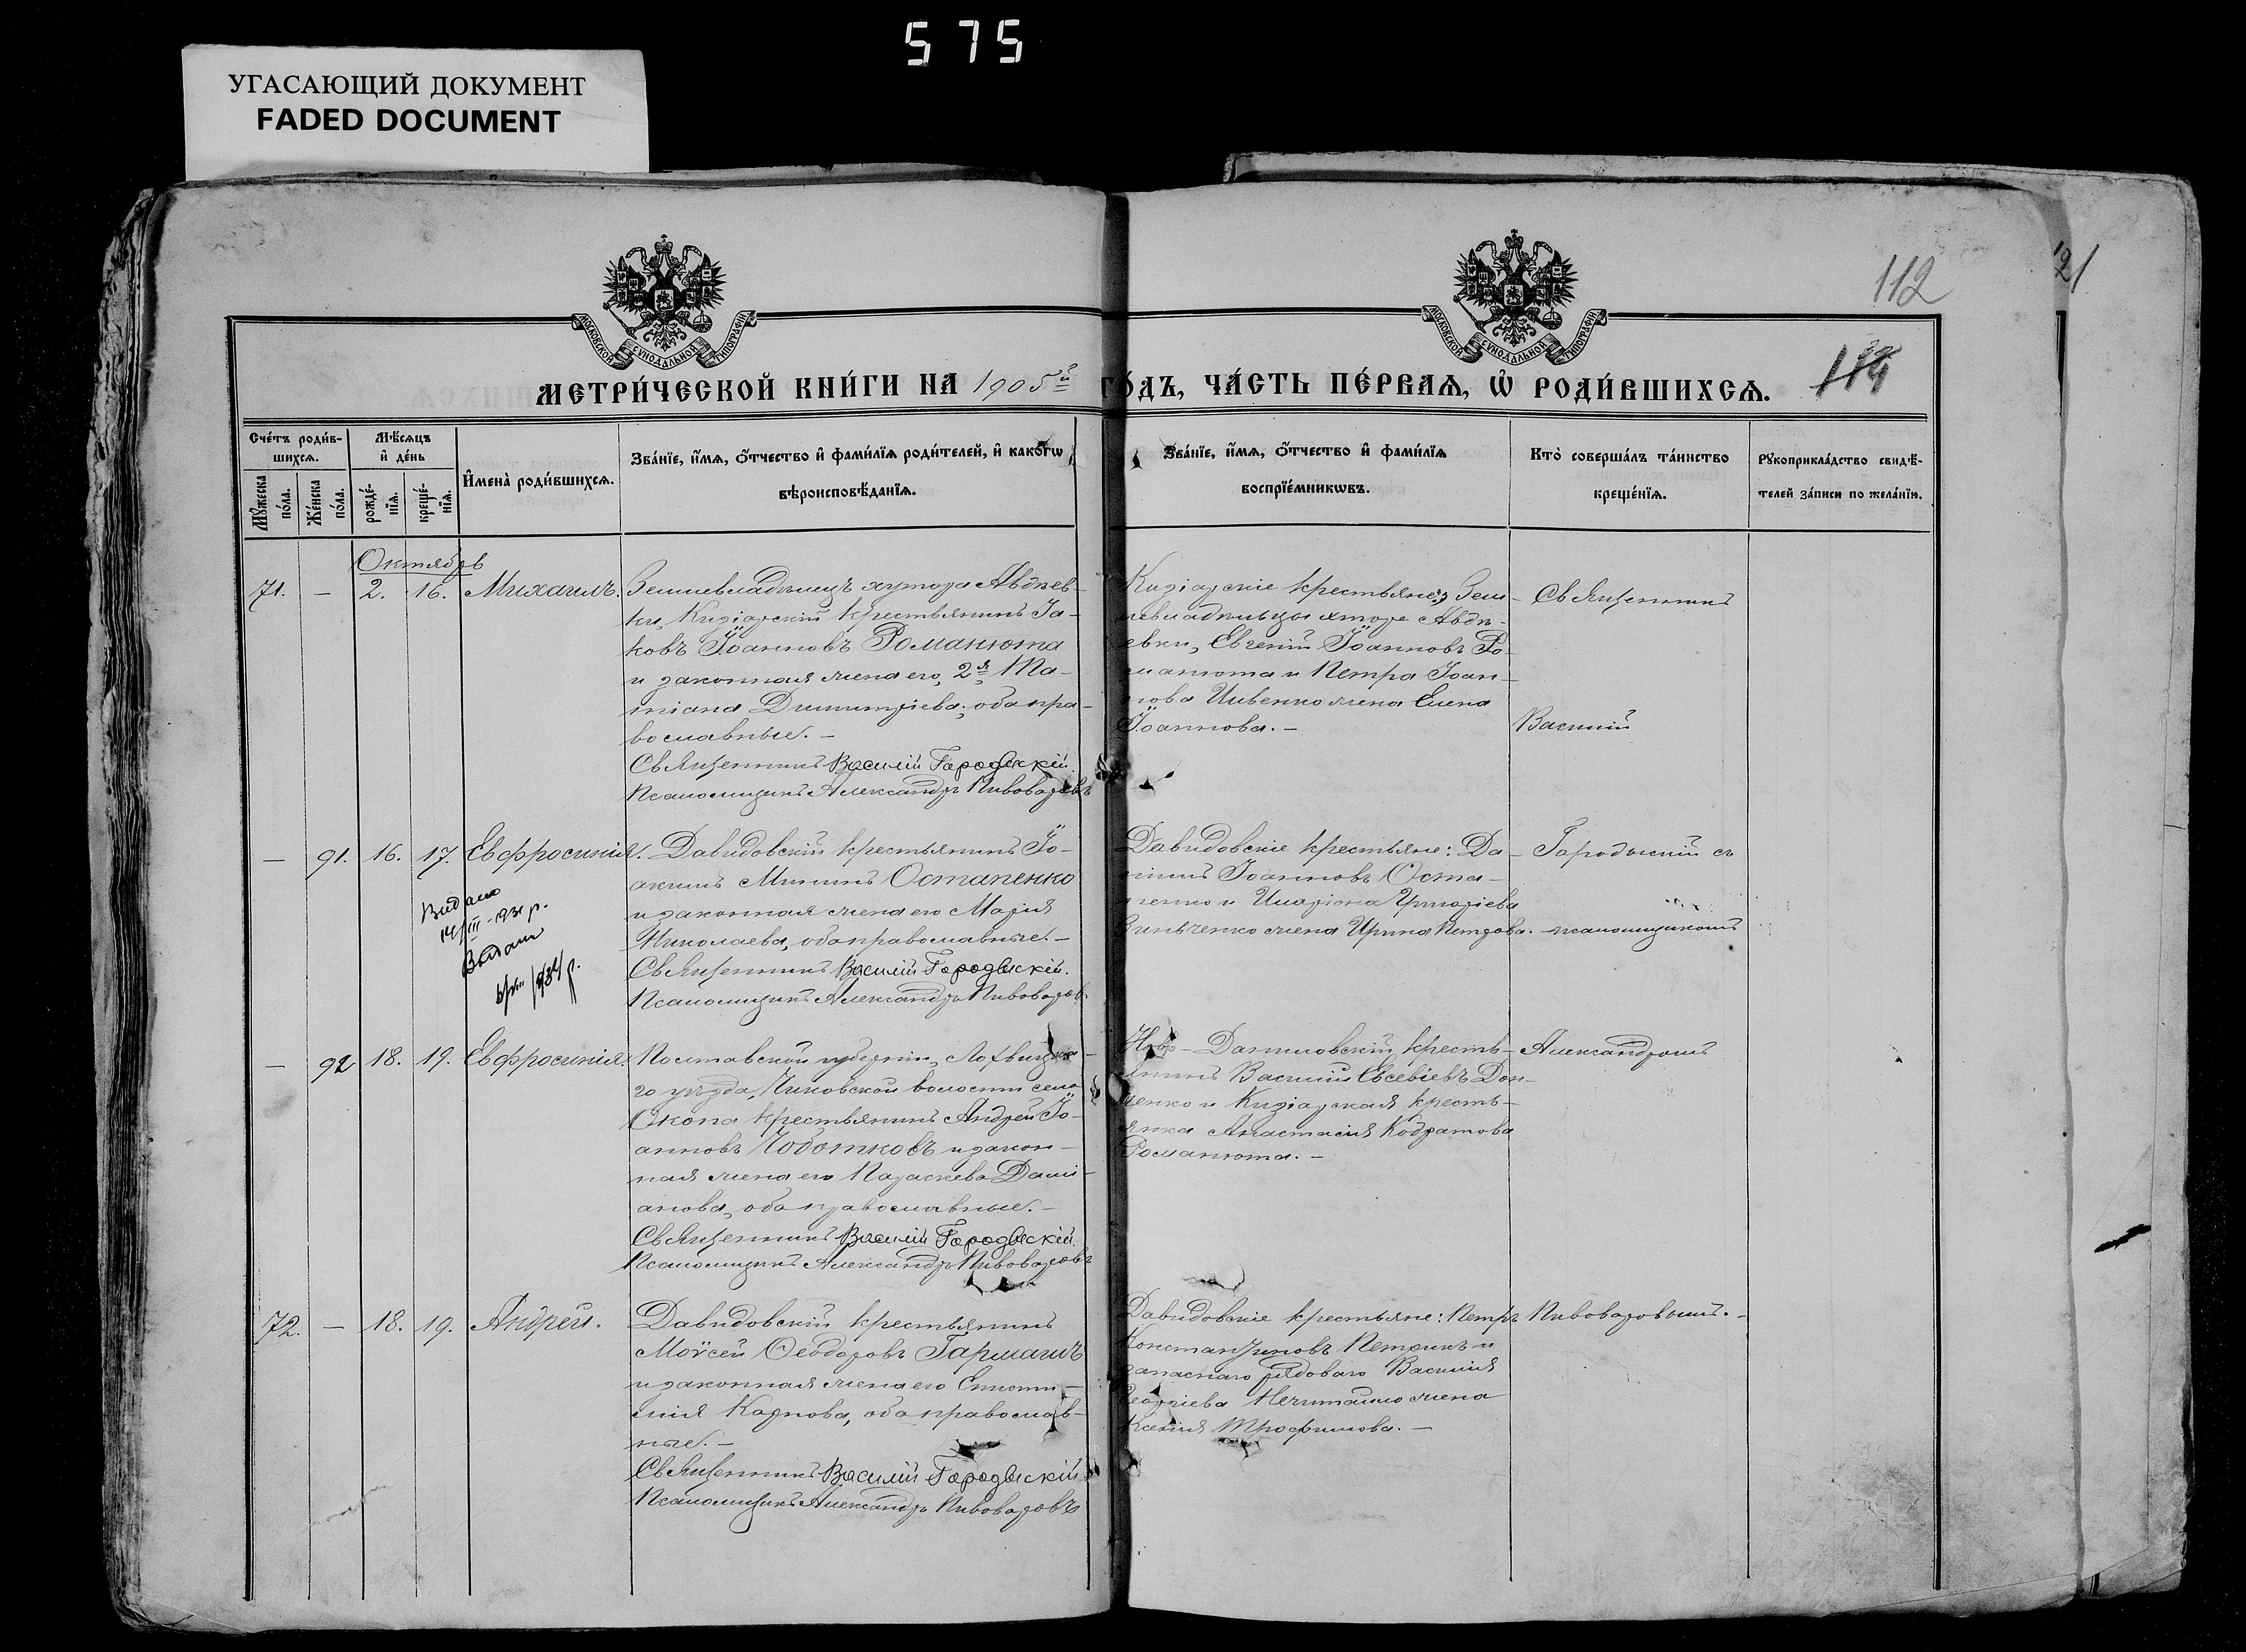 575
УГАСАЮЩИЙ ДОКУМЕНТ
FADED DOCUMENT
112
121
МОСКОВСКОЙ СѴНОДАЛЬНОЙ ТИПОГРАФІИ
МОСКОВСКОЙ СѴНОДАЛЬНОЙ ТИПОГРАФІИ
МЕТРИ́ЧЕСКОЙ КНИ́ГИ НА 1905й ГО́ДЪ, ЧА́СТЬ ПЕ́РВАѦ, Ѽ РОДИ́ВШИХСѦ.
Сче́тъ роди́в-
шихсѧ.
Мѣ́сѧцъ
и҆ де́нь
Мꙋ́жеска
по́ла.
Же́нска
по́ла.
рожде́-
нїѧ.
креще́-
нїѧ.
И҆мена̀ роди́вшихсѧ.
Зва́нїе, и҆́мѧ, ѻ҆́тчество и҆ фами́лїѧ роди́телей, и҆ како́гѡ
вѣроисповѣ́данїѧ.
Зва́нїе, и҆́мѧ, ѻ҆́тчество и҆ фами́лїѧ
воспрїе́мникѡвъ.
Кто̀ соверша́лъ та́инство
креще́нїѧ.
Рꙋкоприкла́дство свидѣ́-
телей за́писи по жела́нїю.
Октябрь
71. — 2. 16. Михаилъ.
Землевладѣлецъ хутора Авдѣев-
ки, Кизіарскій крестьянинъ Іа-
ковъ Іоанновъ Романюта
и законная жена его, 2я Та-
тіана Димитріева, оба пра-
вославные. —
Священникъ Василій Городыскій.
Псаломщикъ Александръ Пивоваровъ
Кизіарскіе крестьяне, Зем-
левладѣльцы хутора Авдѣ-
евки, Евгеній Іоанновъ Ро-
манюта и Петра Іоан-
нова Ивенко жена Елена
Іоаннова. —
Священникъ
Василій
— 91. 16. 17. Евфросинія.
Видано
14/III-1931 р.
Выдана
1934 р.
Давидовскій крестьянинъ Іо-
акимъ Мининъ Остапенко
и законная жена его Марія
Николаева, оба православные. —
Священникъ Василій Городыскій.
Псаломщикъ Александръ Пивоваровъ
Давидовскіе крестьяне: Да-
ніилъ Іоанновъ Оста-
пенко и Иларіона Григоріева
Зинъченко жена Ирина Петрова.
Городыскій съ
псаломщикомъ
— 92 18. 19. Евфросинія.
Полтавской губерніи, Лохвицка-
го уѣзда, Чиковской волости села
Окопа крестьянинъ Андрей Іо-
анновъ Чоботковъ и закон-
ная жена его Параскева Дамі-
анова, оба православные. —
Священникъ Василій Городыскій.
Псаломщикъ Александръ Пивоваровъ
Ново-Даниловскій кресть-
янинъ Василій Евсевіевъ Дон-
ченко и Кизіарская кресть-
янка Анастасія Кодратова
Романюта. —
Александромъ
72. — 18. 19. Андрей.
Давидовскій крестьянинъ
Моѵсей Ѳеодоровъ Гармашъ
и законная жена его Еписти-
мія Карпова, оба православ-
ные. —
Священникъ Василій Городыскій
Псаломщикъ Александръ Пивоваровъ
Давидовскіе крестьяне: Петръ
Константиновъ Петрикъ и
запаснаго рядоваго Василія
Георгіева Нечитайло жена
Ксенія Трофимова. —
Пивоваровымъ. —